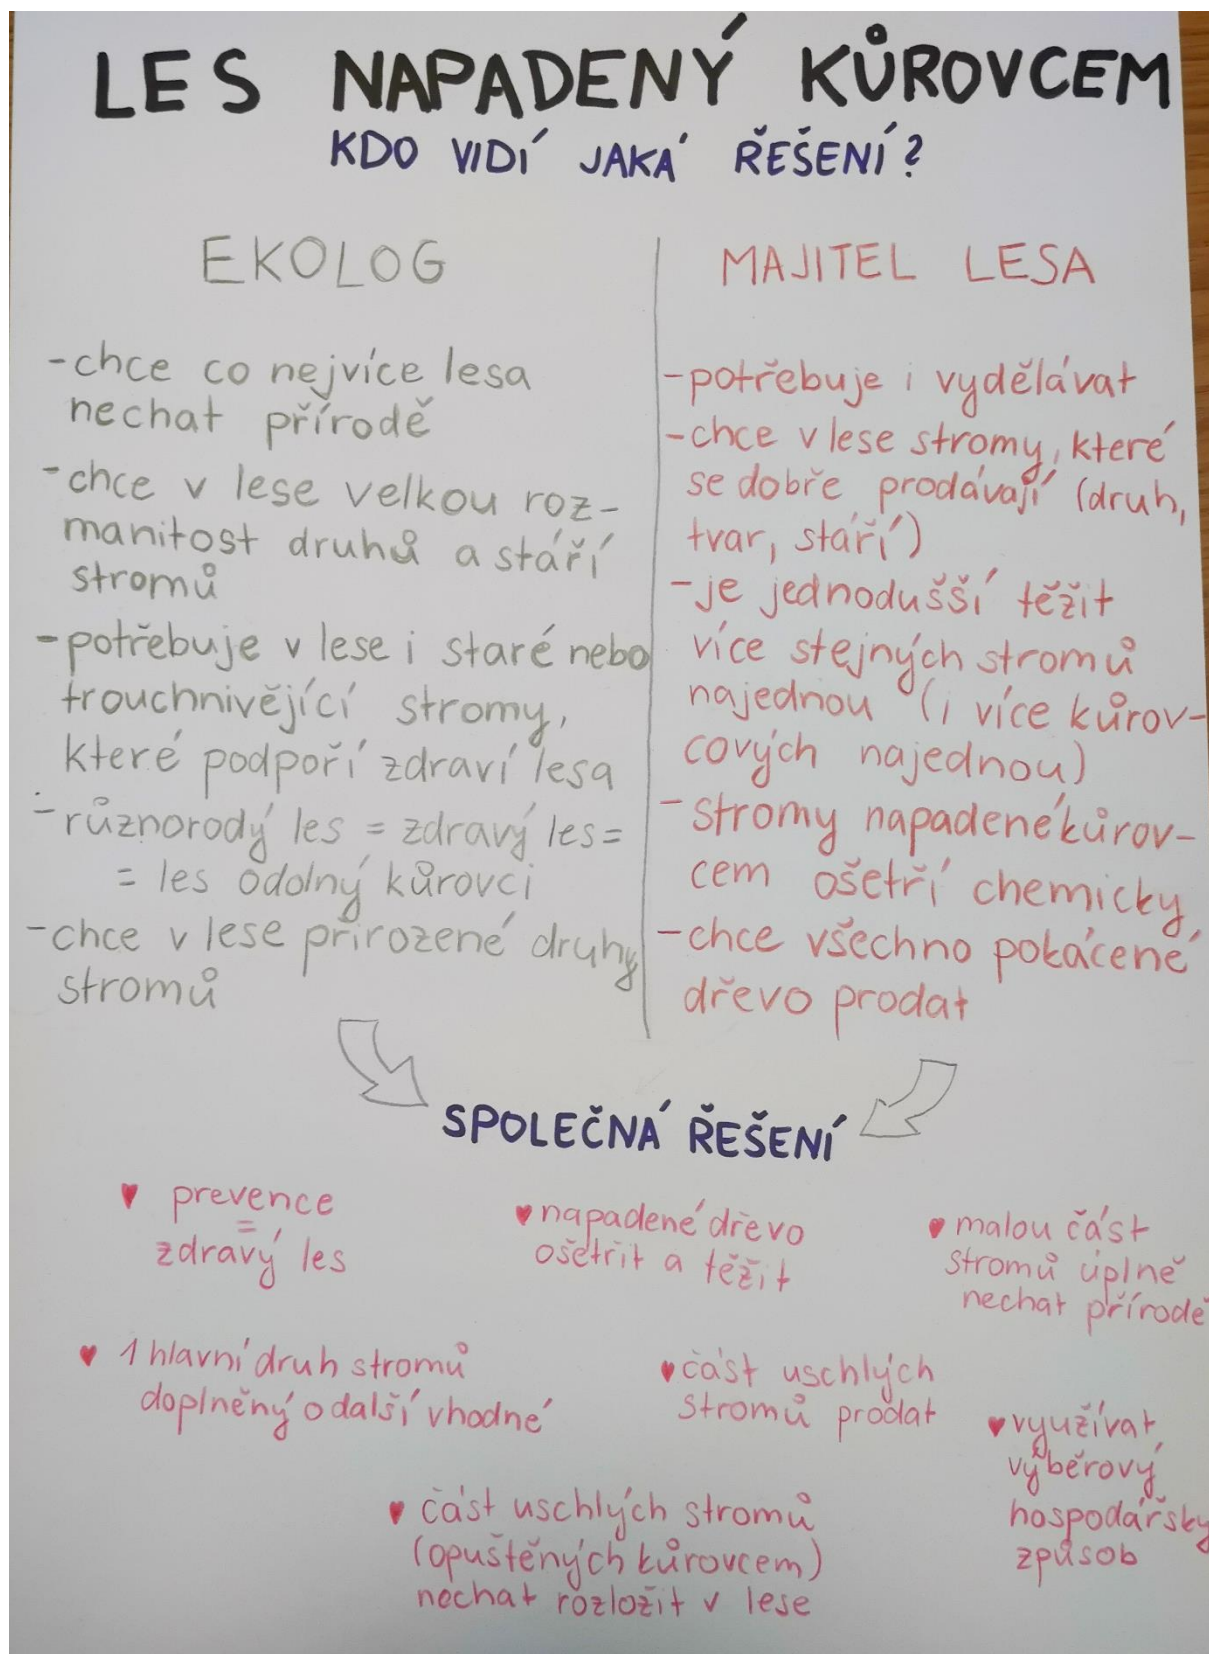 LES NAPADENÝ KŮROVCEM
KDO VIDÍ JAKÁ ŘEŠENÍ?
EKOLOG
-chce co nejvíce lesa
nechat přírodě
-chce v lese velkou roz-
manitost druhů a stáří
stromů
-potřebuje v lese i staré nebo
trouchnivějící stromy,
které podpoří zdraví lesa
-různorodý les = zdravý les=
= les odolný kůrovci
-chce v lese přirozené druhy
stromů
MAJITEL LESA
-potřebuje i vydělávat
-chce v lese stromy, které
se dobře prodávají (druh,
tvar, stáří)
-je jednodušší těžit
více stejných stromů
najednou (i více kůrov-
cových najednou)
-stromy napadené kůrov-
cem ošetří chemicky
-chce všechno pokácené
dřevo prodat
SPOLEČNÁ ŘEŠENÍ
♥ prevence
=
zdravý les
♥ napadené dřevo
ošetřit a těžit
♥ malou část
stromů úplně
nechat přírodě
♥ 1 hlavní druh stromů
doplněný o další vhodné
♥ část uschlých
stromů prodat
♥ využívat
výběrový
hospodářský
způsob
♥ část uschlých stromů
(opuštěných kůrovcem)
nechat rozložit v lese